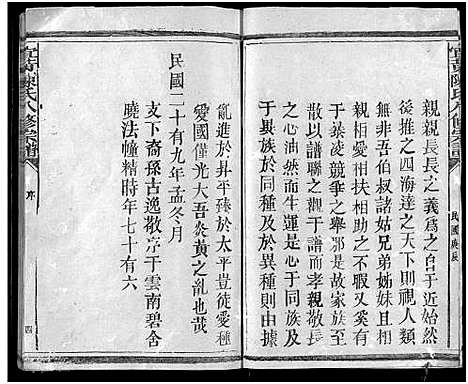 親親長長之義爲之自于近始然
後推之四海達之天下則視人類
無非吾伯叔諸姑兄弟姊妹且相
親相愛相扶相助之不暇何至
于暴凌競爭之舉鄂是故家族之
以有譜聯之觀于譜而孝親敬長
之心油然而生運是心于同族及
異族由於同種及于異種則由據
亂進於昇平臻於太平豈徒愛種
愛國僅光大吾炎黃之亂也哉
民國二十有九年孟冬月
支下裔孫古逸敬序于雲南碧舍
曉法幢精時年七十有六
陳氏八修宗譜
序
四
民國庚辰